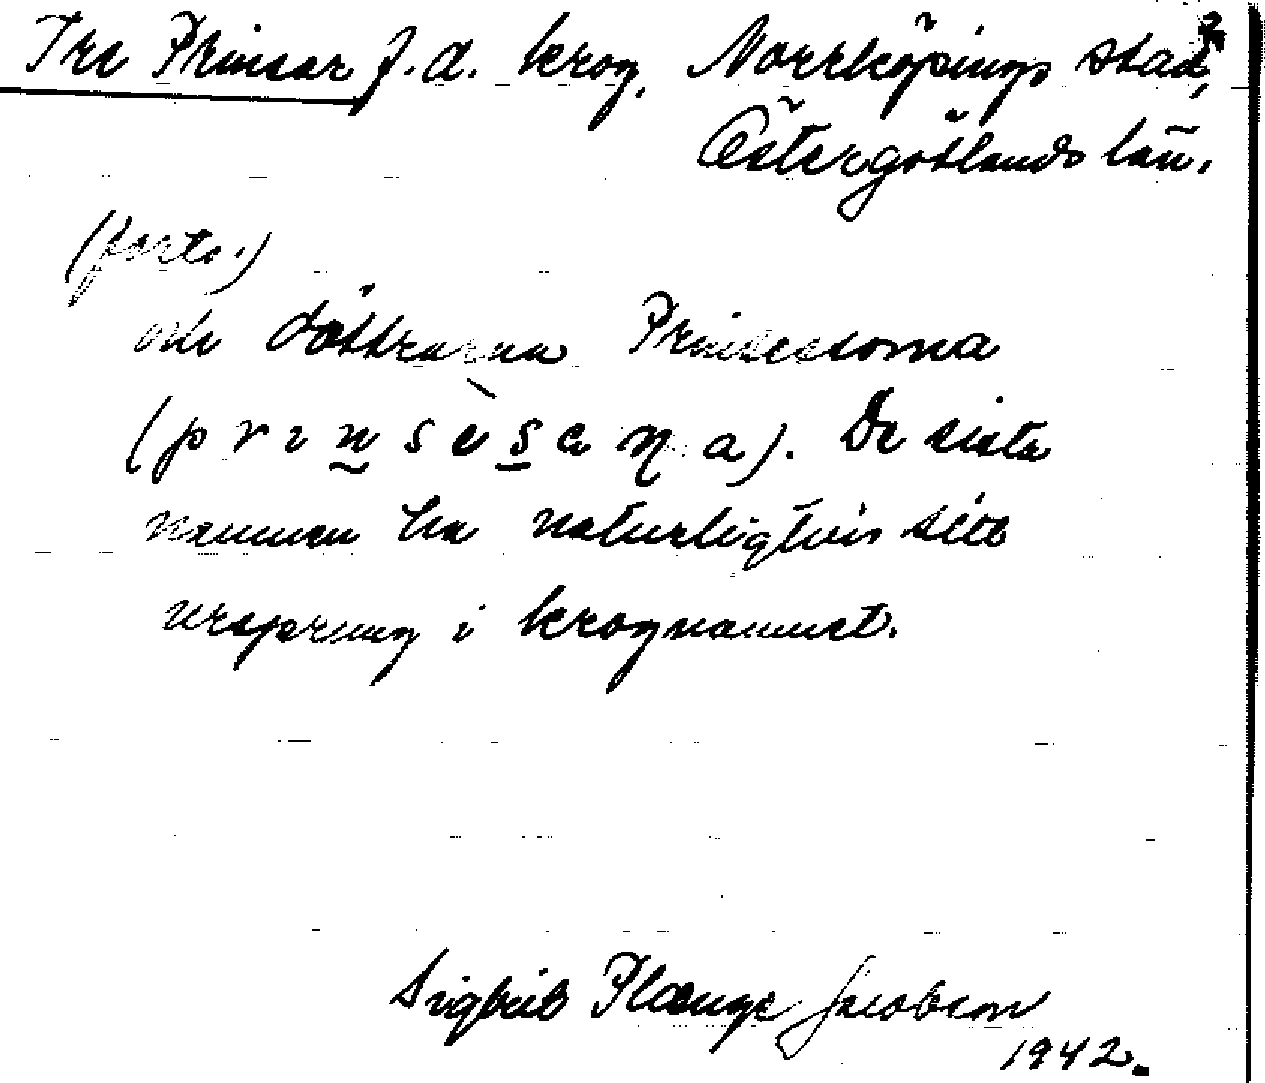 Tre Prinsar f.d. krog, Norrköpings stad,
Östergötlands län.
(forts.)
och döttrarna Prinsessorna
(prinsèseṇa). De sista
namnen ha naturligtvis sitt
ursprung i krognamnet.
Sigbrit Plænge Jacobson
1942.